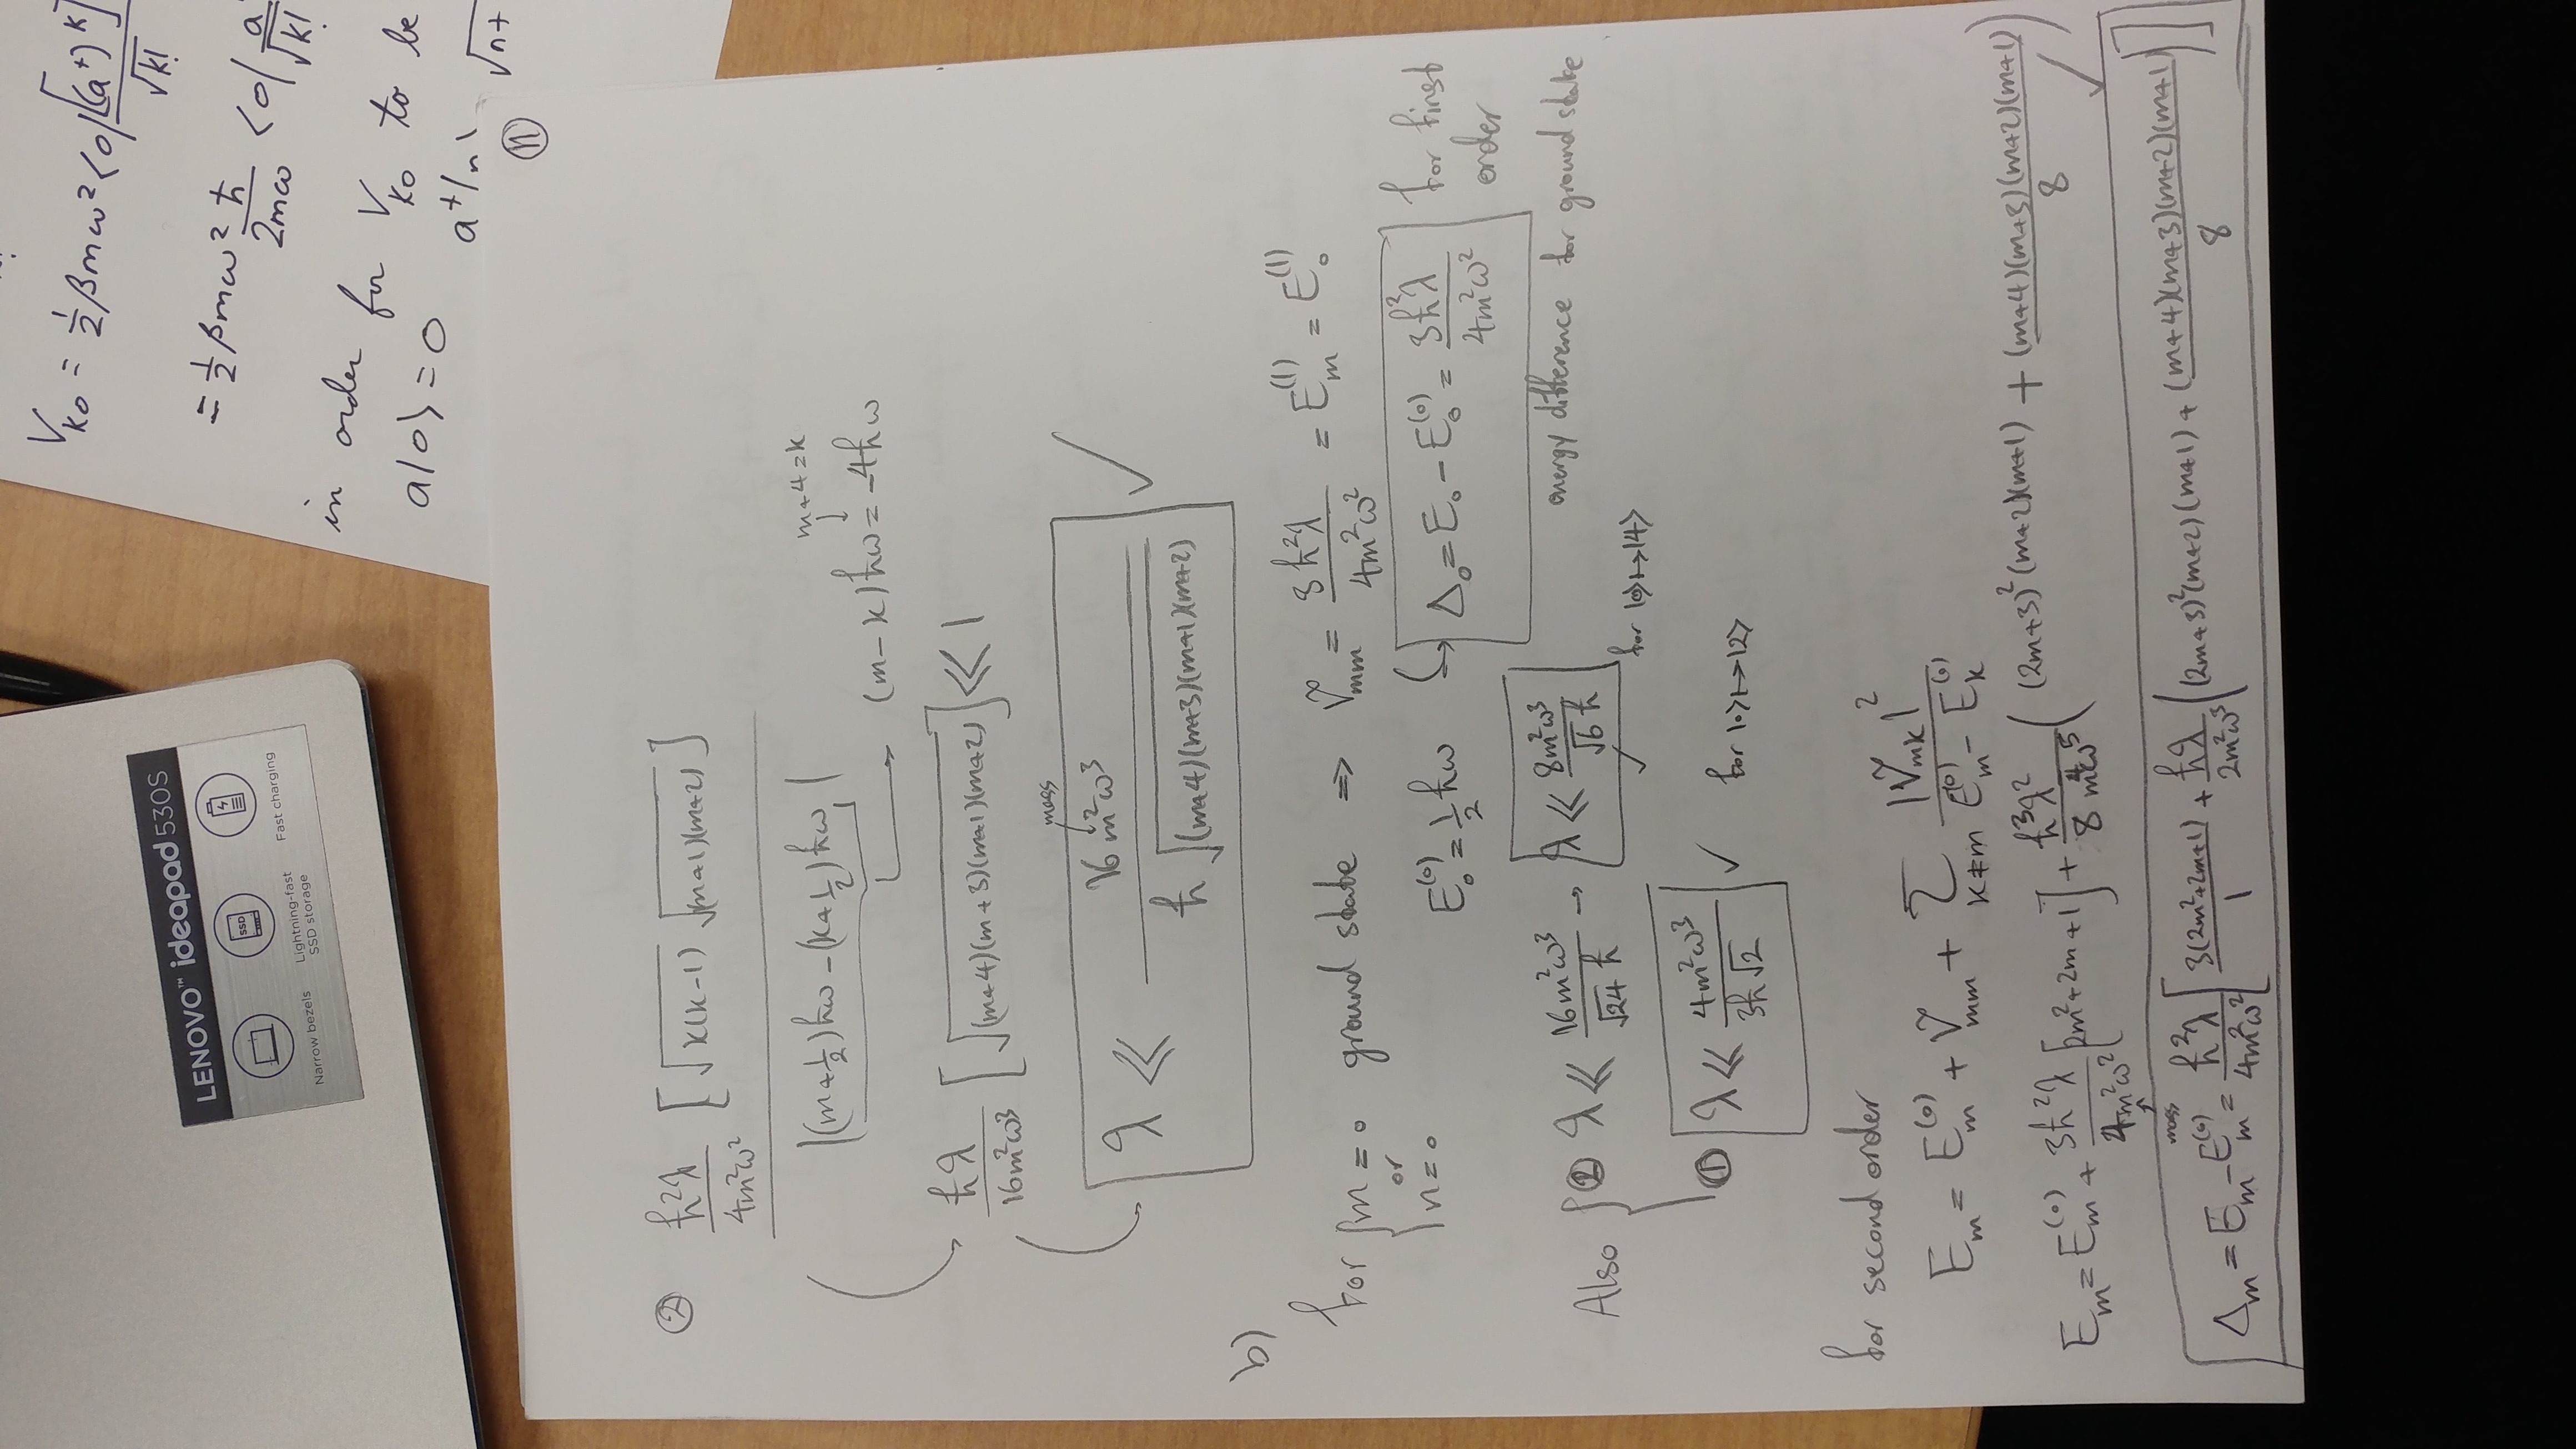 LENOVO™ ideapad 530S
SSD
Narrow bezels
Lightning-fast SSD storage
Fast charging
V_k0 = 1/2 βmω² <0|[(a⁺)^k]/√k!
= 1/2 βmω² ħ/2mω <0| a/√k!
in order for V_k0 to be
a|0> = 0
a⁺|n √n+
⑪
② ħ²λ/4m²ω² [√k(k-1) √(m+1)(m+2)]
|(m+1/2)ħω - (k+1/2)ħω|
m+4=k
(m-k)ħω = -4ħω
ħλ/16m²ω³ [√(m+4)(m+3)(m+1)(m+2)] ≪ 1
mass
λ ≪ 16m²ω³ / ħ√(m+4)(m+3)(m+1)(m+2) ✓
b)
for { m=0 or n=0 ground state ⇒ Ṽ_mm = 3ħ²λ/4m²ω² = E_m^(1) = E_0^(1)
E_0^(0) = 1/2 ħω
Δ_0 = E_0 - E_0^(0) = 3ħ²λ/4m²ω² for first order
energy difference for ground state
Also { ② λ ≪ 16m²ω³/√24 ħ → λ ≪ 8m²ω³/√6 ħ ✓ for |0>↦|4>
① λ ≪ 4m²ω³/3ħ√2 ✓ for |0>↦|2>
for second order
E_m = E_m^(0) + Ṽ_mm + Σ_k≠m |Ṽ_mk|²/E_m^(0) - E_k^(0)
E_m = E_m^(0) + 3ħ²λ/4m²ω² [2m²+2m+1] + ħ³λ²/8m⁴ω⁵ ((2m+3)²(m+2)(m+1) + (m+4)(m+3)(m+2)(m+1)/8) ✓
mass
Δ_m = E_m - E_m^(0) = ħ²λ/4m²ω² [3(2m²+2m+1)/1 + ħλ/2m²ω³ ((2m+3)²(m+2)(m+1) + (m+4)(m+3)(m+2)(m+1)/8)]